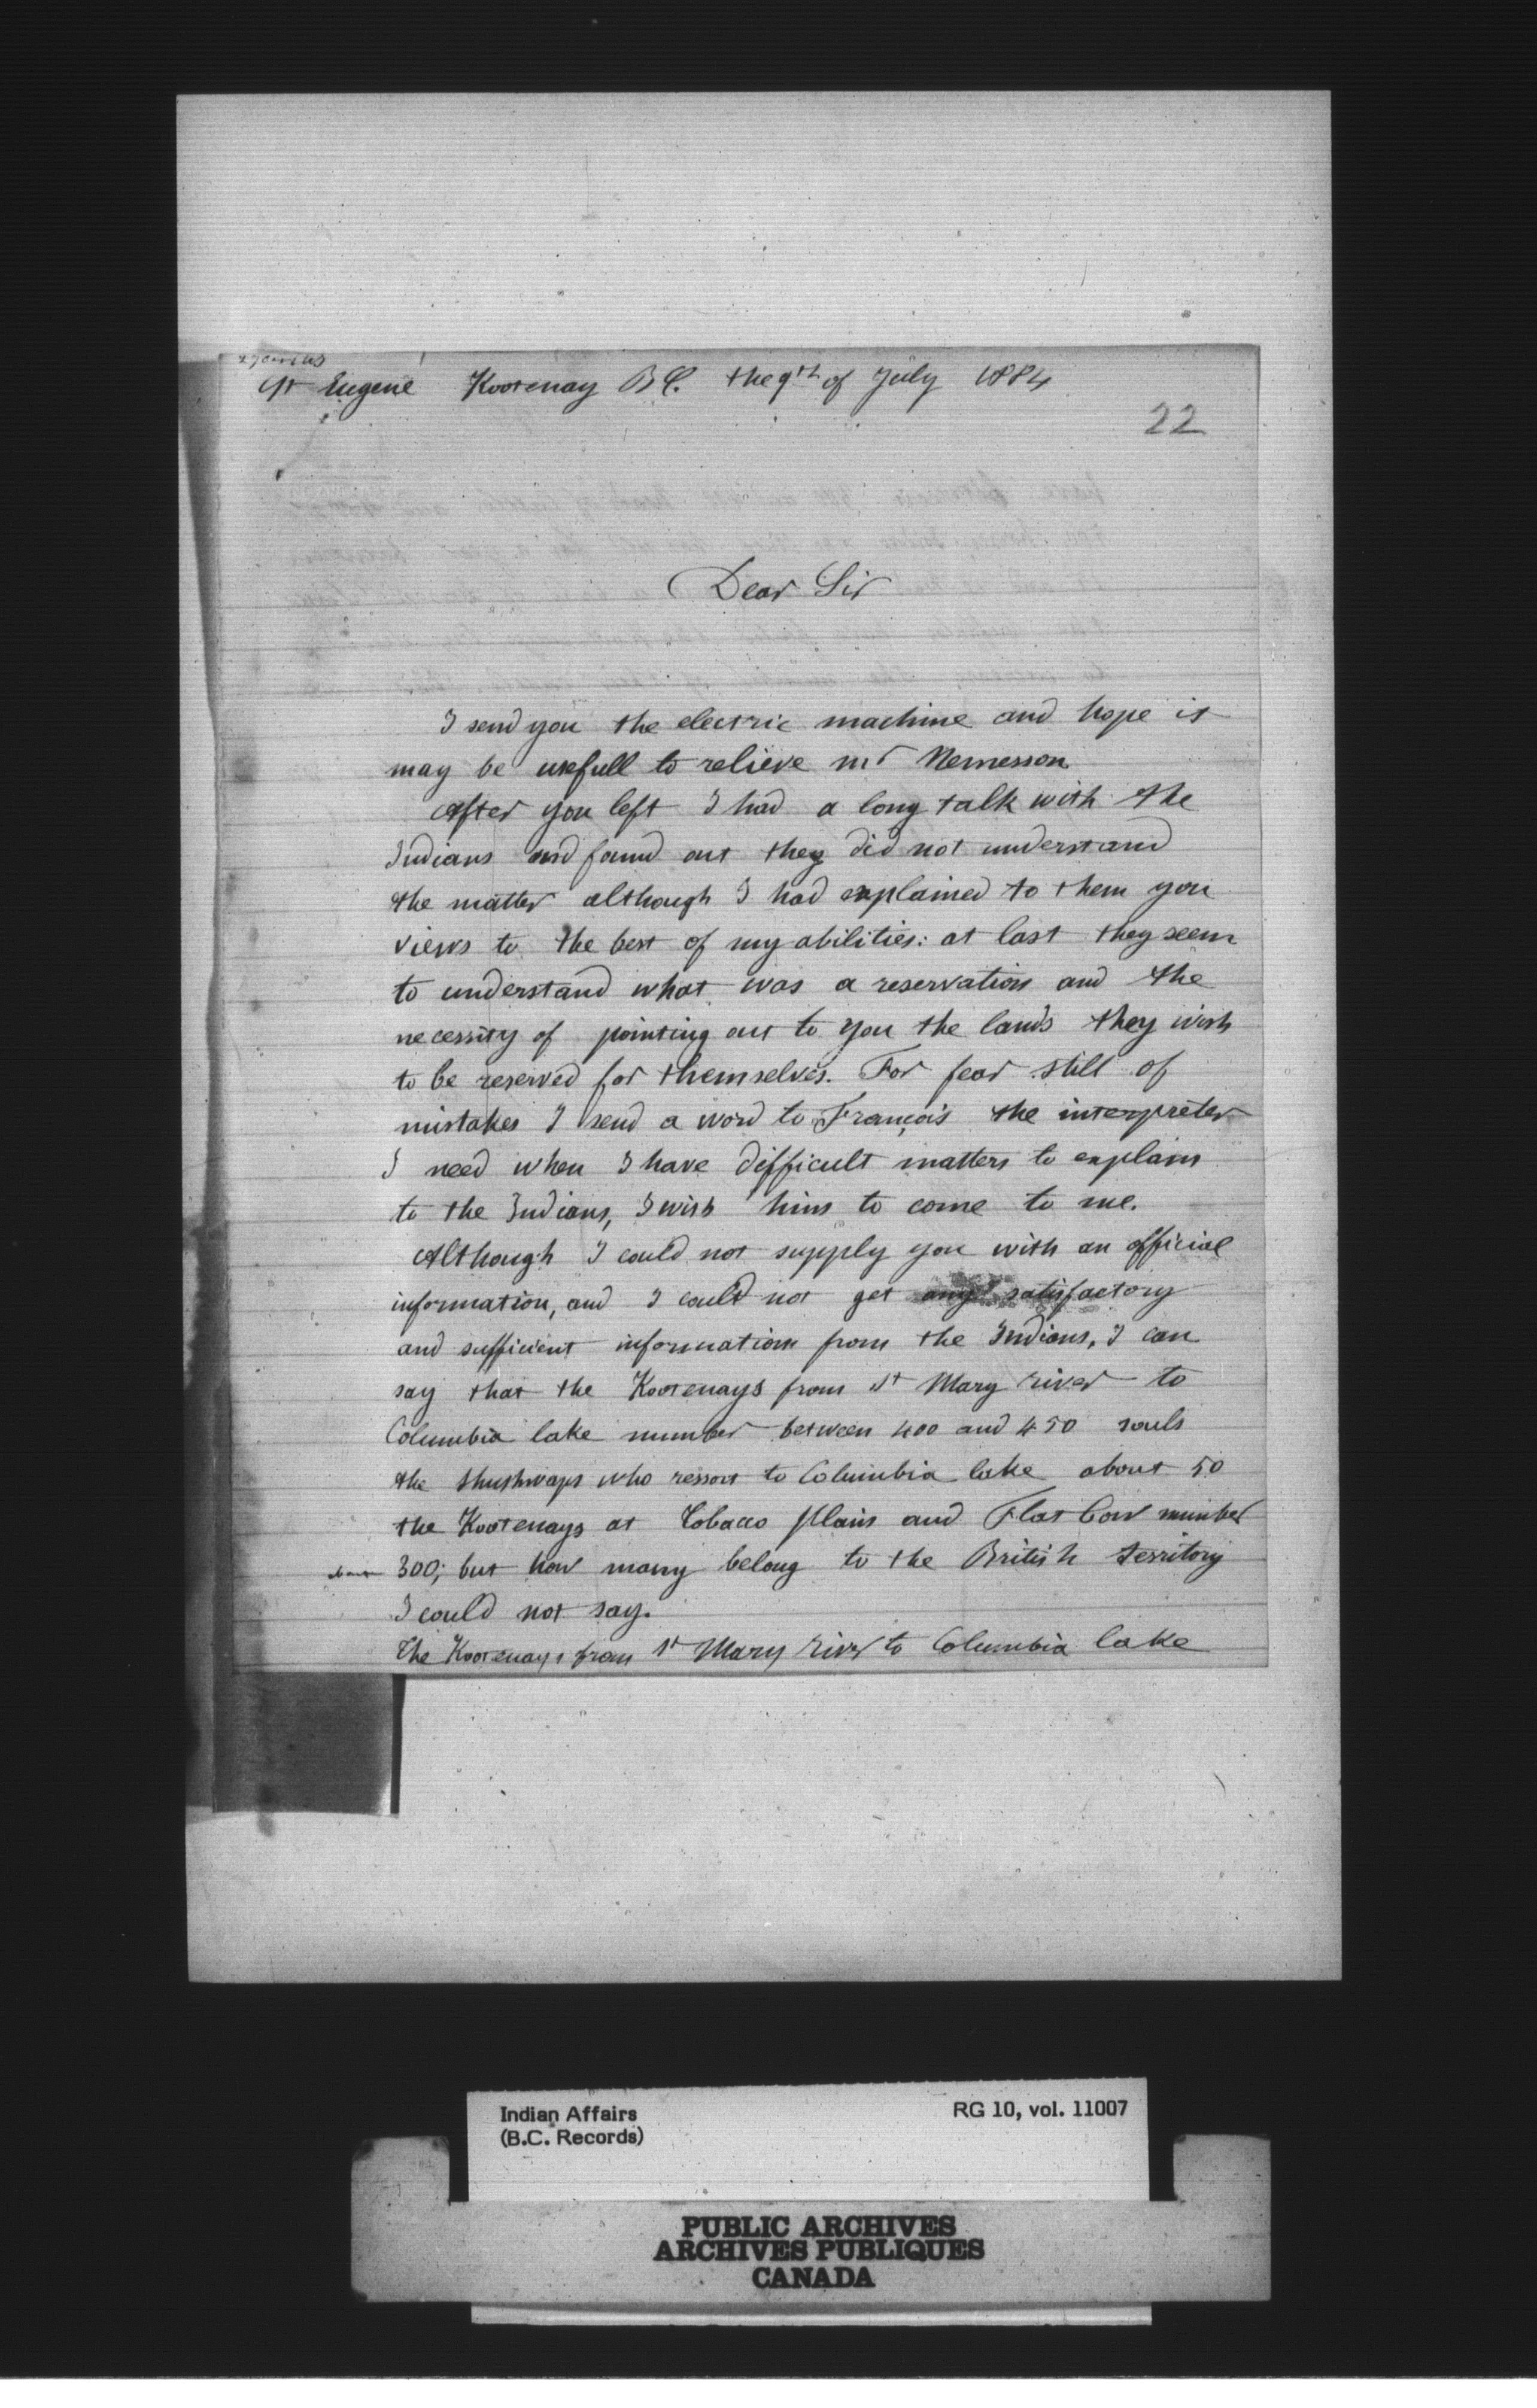 St Eugene Kootenay B.C. the 9th of July 1884
22
Dear Sir
I send you the electric machine and hope it
may be usefull to relieve mr Nemesson
After you left I had a long talk with the
Indians and found out they did not understand
the matter although I had explained to them you
views to the best of my abilities: at last they seem
to understand what was a reservation and the
necessity of pointing out to you the lands they wish
to be reserved for themselves. For fear still of
mistakes I send a word to François the interpreter
I need when I have difficult matters to explain
to the Indians, I wish him to come to me.
Although I could not supply you with an official
information, and I could not get any satisfactory
and sufficient information from the Indians, I can
say that the Kootenays from St Mary river to
Columbia lake number between 400 and 450 souls
the Shushwaps who ressort to Columbia lake about 50
the Kootenays at Tobacco plains and Flat bow number
about 300; but how many belong to the British territory
I could not say.
The Kootenays from St Mary river to Columbia lake
Indian Affairs
(B.C. Records)
RG 10, vol. 11007
PUBLIC ARCHIVES
ARCHIVES PUBLIQUES
CANADA